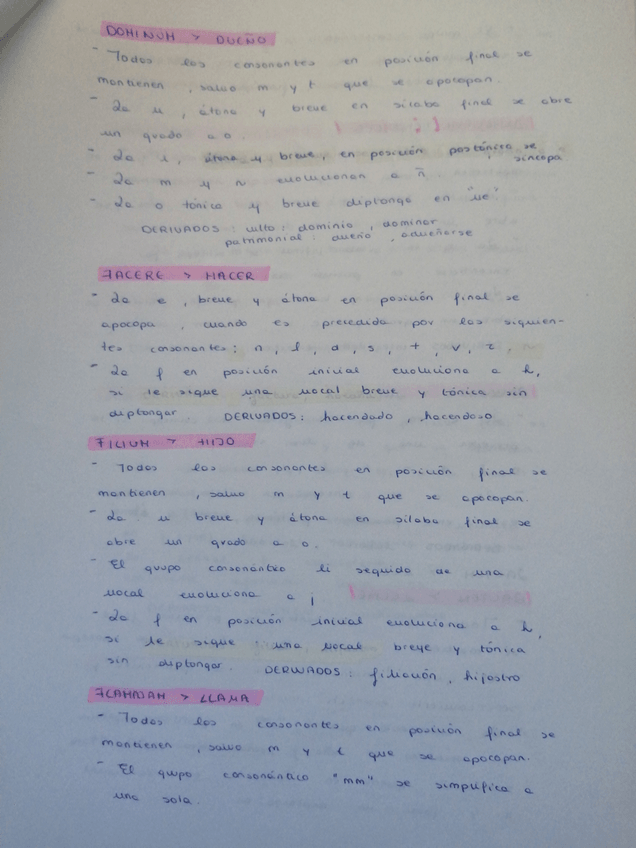 DOMINUM > DUEÑO
- Todas las consonantes en posición final se
mantienen, salvo m y t que se apocopan.
- La u, átona y breve en sílaba final se abre
un grado a o.
- La i, átona y breve, en posición postónica se sincopa
- La m y n evolucionan a ñ.
- La o tónica y breve diptonga en "ue"
DERIVADOS: culto: dominio, dominar
patrimonial: dueño, adueñarse
FACERE > HACER
- La e, breve y átona en posición final se
apocopa, cuando es precedida por las siguien-
tes consonantes: n, l, d, s, t, v, z,
- La f en posición inicial evoluciona a h,
si le sigue una vocal breve y tónica sin
diptongar DERIVADOS: hacendado, hacendoso
FILIUM > HIJO
- Todas las consonantes en posición final se
mantienen, salvo m y t que se apocopan.
- La u breve y átona en sílaba final se
abre un grado a o.
- El grupo consonántico li seguido de una
vocal evoluciona a j
- La f en posición inicial evoluciona a h,
si le sigue una vocal breve y tónica
sin diptongar. DERIVADOS: filiación, hijastro
> LLAMA
- Todas las consonantes en posición final se
mantienen, salvo m y t que se apocopan.
- El grupo consonántico "mm" se simplifica a
una sola.